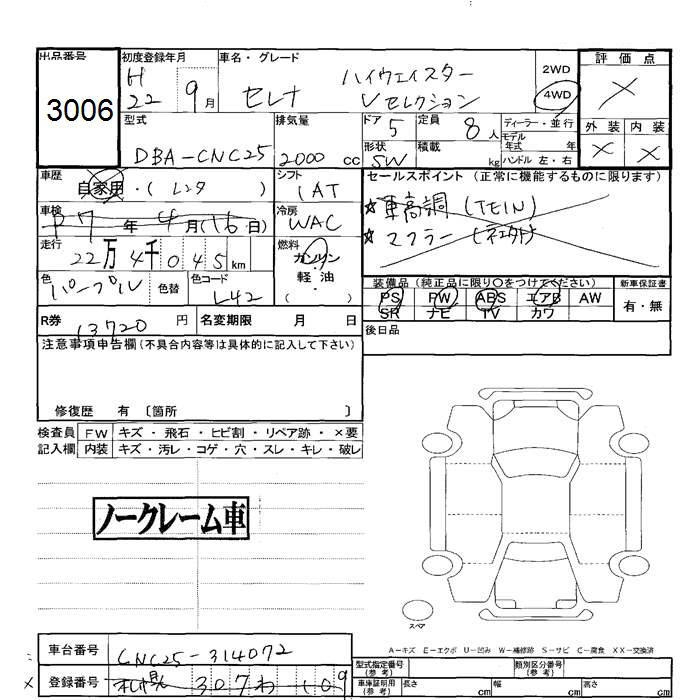 出品番号 初度登録年月 車名・グレード 2WD 評価点
3006 H22 9月 セレナ ハイウェイスター Vセレクション 4WD ×
型式 排気量 ドア 5 定員 8人 ディーラー・並行 外装 内装
DBA-CNC25 2000cc 形状 SW 積載 kg モデル年式 年 × ×
ハンドル 左・右
車歴 自家用・(レンタ) シフト 1AT セールスポイント(正常に機能するものに限ります)
車検 年4月(16日) 冷房 WAC ☆車高調(TEIN)
走行 22万4千045km 燃料 ガソリン・軽・油 ☆マフラー
色 パープル 色替 色コード L42
装備品(純正品に限り〇をつけてください) 新車保証書
PS PW ABS エアB AW 有・無
SR ナビ TV カワ
R券 13720円 名変期限 月 日 後日品
注意事項申告欄(不具合内容等は具体的に記入して下さい)
修復歴 有〔箇所 〕
検査員 FW キズ・飛石・ヒビ割・リペア跡・×要
記入欄 内装 キズ・汚レ・コゲ・穴・スレ・キレ・破レ
ノークレーム車
スペア
A-キズ E-エクボ U-凹み W-補修跡 S-サビ C-腐食 XX-交換済
車台番号 CNC25-314072 型式指定番号(参考) 類別区分番号(参考)
× 登録番号 札幌 307わ 109 車庫証明用(参考) 長さ cm 幅 cm 高さ cm